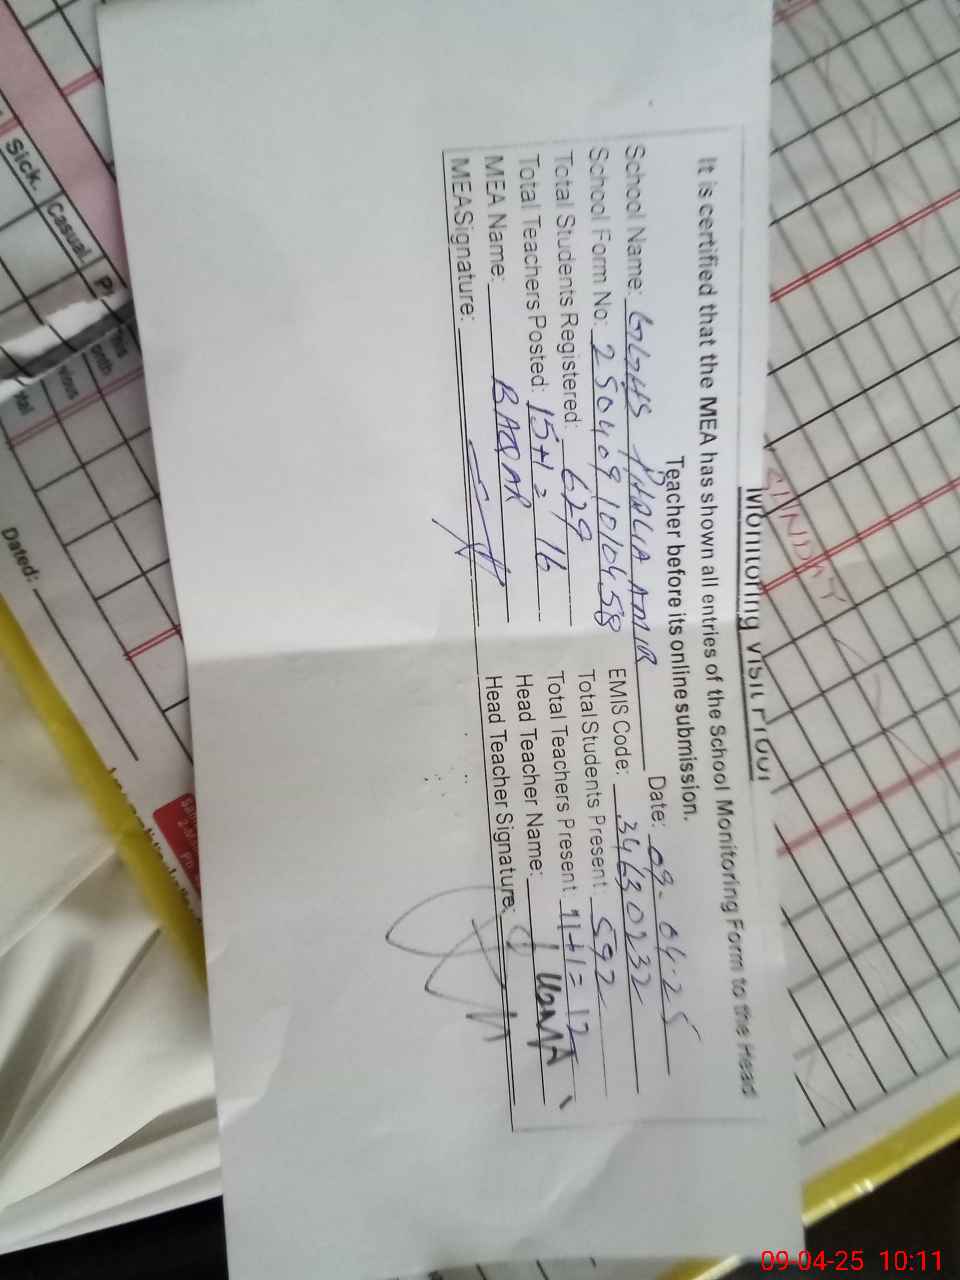 Monitoring Visit Proof
It is certified that the MEA has shown all entries of the School Monitoring Form to the Head
Teacher before its online submission.
Date: 09-04-25
School Name: GGHS
School Form No: 2504091010458 EMIS Code: 34630232
Total Students Registered: 629 Total Students Present: 592
Total Teachers Posted: 15+1=16 Total Teachers Present 11+1=12
MEA Name: Head Teacher Name: UZMA
MEASignature: Head Teacher Signature:
SUNDAY
Sick. Casual
Dated:
09-04-25 10:11